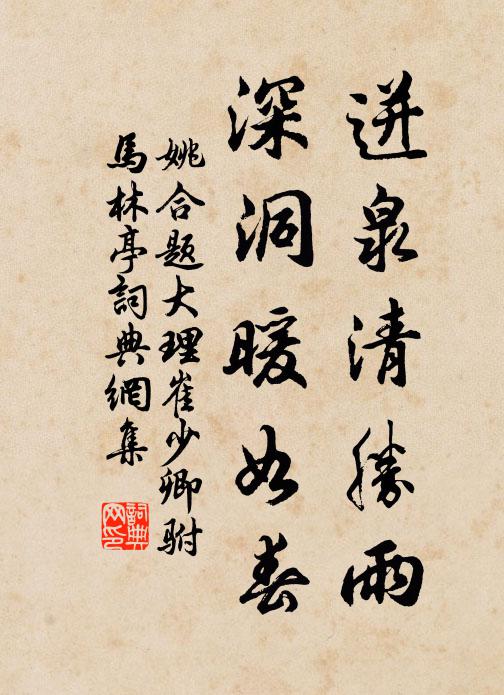 迸泉清勝雨
深洞暖如春
姚合題大理崔少卿駙
馬林亭詞典網集
詞典
网印